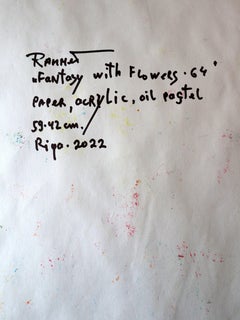 Rammet
„Fantasy with Flowers. 64"
paper, acrylic, oil pastel
59.42 cm.
Riga. 2022